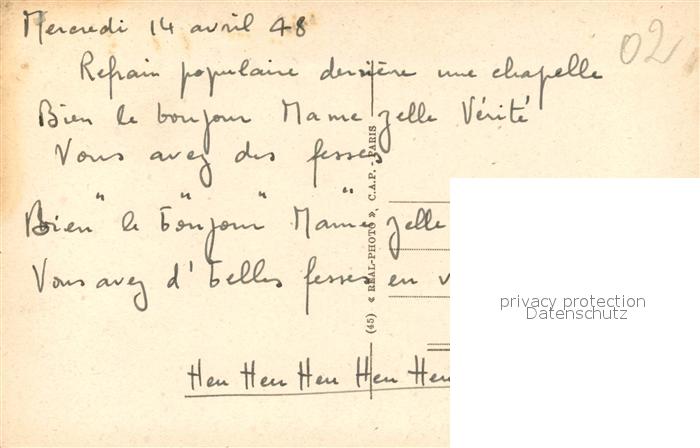 Mercredi 14 avril 48
02
Refrain populaire derrière une chapelle
Bien le bonjour Mame zelle Vérité
Vous avez des fesses
" " " "
Bien le bonjour Mam' zelle
Vous avez d' belles fesses en v
Heu Heu Heu Heu Heu
(45) « REAL-PHOTO », C.A.P. - PARIS
privacy protection
Datenschutz